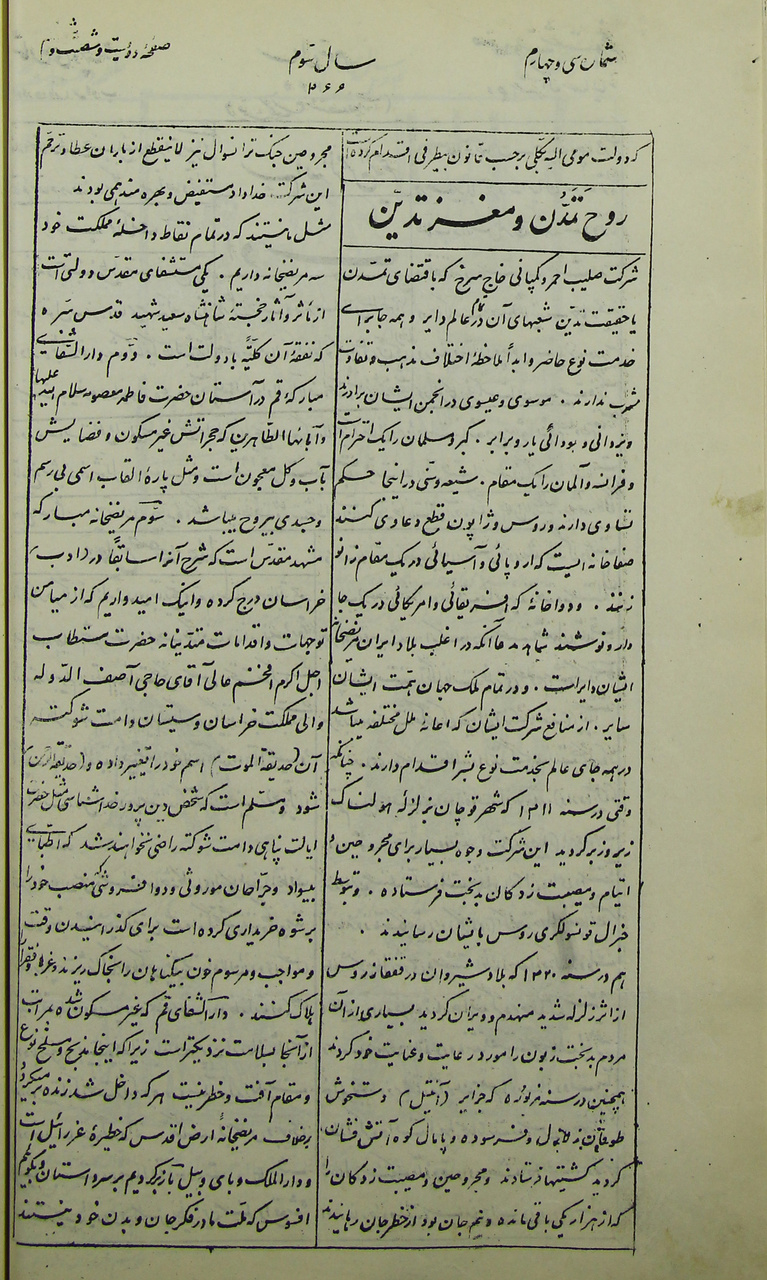 شماره سی و چهارم
سال سوم
۲۶۶
صفحه دویست و شصت و
که دولت مومی الیه بکلی برحسب قانون بیطرفی اقدام کرده است
روح تمدّن و مغز تدیّن
شرکت صلیب احمر و کمپانی خاج سرخ که باقتضای تمدّن
یا حقیقت تدیّن شعبهای آن در تمام عالم دایر و همه جا برای
خدمت نوع حاضر و ابداً ملاحظهٔ اختلاف مذهب و تفاوت
مشرب ندارند . موسوی و عیسوی در انجمن ایشان برادرند
و یزدانی و بودائی یار و برابر . گبر و مسلمان را یک احترام است
و فرانسه و آلمان را یک مقام . شیعه و سنی در اینجا حکم
تساوی دارند و روس و ژاپون قطع دعاوی کنند
صفاخانه ایست که اروپائی و آسیائی در یک مقام زانو
زنند . و دواخانهٔ که افریقائی و امریکائی در یک جا
دارو نوشند شاهد مدعا آنکه در اغلب بلاد ایران مریضخانهٔ
ایشان دایر است . و در تمام ملک جهان همّت ایشان
سایر . از منافع شرکت ایشان که اعانهٔ ملل مختلفه میباشد
در همه جای عالم بخدمت نوع بشر اقدام دارند . چنانکه
وقتی در سنه ۱۳۱۱ که شهر قوچان بزلزلهٔ هولناک
زیر و زبر گردید این شرکت وجوه بسیار برای مجروحین و
ایتام و مصیبت زدگان بدبخت فرستاده . و بتوسط
جنرال قونسولگری روس بایشان رسانیدند .
هم در سنه ۱۳۲۰ که بلاد شیروان در قفقاز روس
از اثر زلزله شدید منهدم و ویران گردید بسیاری از آن
مردم بدبخت زبون را مورد رعایت و عنایت خود کردند
همچنین در سنه مزبوره که جزایر (آنتیل) دستخوش
طوفان و فرسوده و پامال کوه آتش فشان
گردید کشتیها فرستادند و مجروحین و مصیبت زدگان را
که از هزار یکی باقی مانده و نیم جان بود از خطر جان رهانیدند
مجروحین جنگ ترانسوال نیز لاینقطع از باران عطا و ترحّم
این شرکت خداداد مستفیض و بهره مند همی بودند
مثل ما نیستند که در تمام نقاط داخلهٔ مملکت خود
سه مریضخانه داریم . یکی مستشفای مقدّس دولتی است
از مآثر و آثار خجستهٔ شاهنشاه سعید شهید قدس سره
که نفقهٔ آن کلیّه با دولت است . دوّم دارالشفای
مبارکهٔ قم در آستان حضرت فاطمه معصومه سلام الله علیها
و آبائها الطاهرین که حجراتش غیر مسکون و فضایش
بآب و گل معجون است و مثل پارهٔ القاب اسمی بی رسم
و جسدی بیروح میباشد . سوّم مریضخانه مبارکه
مشهد مقدّس است که شرح آنرا سابقاً در (ادب)
خراسان درج کرده و اینک امیدواریم که از میامن
توجهات و اقدامات متدیّنانه حضرت مستطاب
اجل اکرم افخم عالی آقای حاجی آصف الدّوله
والی مملکت خراسان و سیستان دامت شوکته
آن (حدیقة الموت) اسم خود را تغییر داده و
شود و مسلّم است که شخص دین پرور خداشناسی مثل حضرت
ایالت پناهی دامت شوکته راضی نخواهند شد که اطبّای
بیسواد و جرّاحان موروثی و دوا فروشی که منصب خود را
برشوه خریداری کرده است برای گذرانیدن وقت
و مواجب و مرسوم خون بیگناهان را بخاک ریزند و غربا و فقرا
هلاک کنند . دارالشفای قم که غیر مسکون شده بمراتب
از آنجا بسلامت نزدیکتر است زیرا که اینجا مذبح و مسلخ نوع
و مقام آفت و خطر نیست هر که داخل شد زنده بر میگردد
برخلاف مریضخانهٔ ارض اقدس که حظیرهٔ عزرائیل است
و دارالملک وبای و بیل باز گردیم بر سر داستان و بگوئیم
افسوس که ملّت ما در فکر جان و بدن خود نیستند